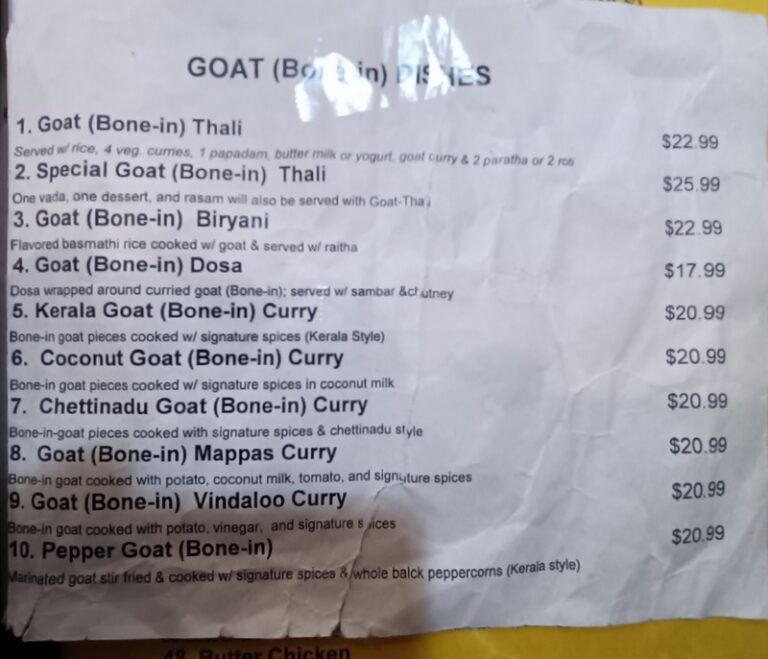 GOAT (Bone-in) DISHES
1. Goat (Bone-in) Thali $22.99
Served w/ rice, 4 veg. curries, 1 papadam, butter milk or yogurt, goat curry & 2 paratha or 2 roti
2. Special Goat (Bone-in) Thali $25.99
One vada, one dessert, and rasam will also be served with Goat-Thali
3. Goat (Bone-in) Biryani $22.99
Flavored basmathi rice cooked w/ goat & served w/ raitha
4. Goat (Bone-in) Dosa $17.99
Dosa wrapped around curried goat (Bone-in); served w/ sambar &chutney
5. Kerala Goat (Bone-in) Curry $20.99
Bone-in goat pieces cooked w/ signature spices (Kerala Style)
6. Coconut Goat (Bone-in) Curry $20.99
Bone-in goat pieces cooked w/ signature spices in coconut milk
7. Chettinadu Goat (Bone-in) Curry $20.99
Bone-in-goat pieces cooked with signature spices & chettinadu style
8. Goat (Bone-in) Mappas Curry $20.99
Bone-in goat cooked with potato, coconut milk, tomato, and signature spices
9. Goat (Bone-in) Vindaloo Curry $20.99
Bone-in goat cooked with potato, vinegar, and signature spices
10. Pepper Goat (Bone-in) $20.99
Marinated goat stir fried & cooked w/ signature spices & whole balck peppercorns (Kerala style)
48. Butter Chicken